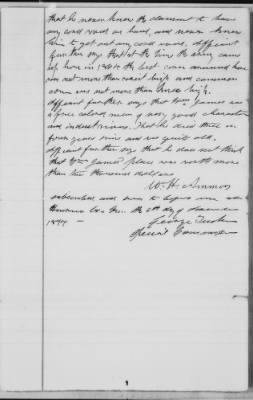 that he never knew the claimant to have
any cord wood on hand, and never knew
him to get out any cord wood, affiant
further say that at the time the army came
up here in 1864 the best corn around here
was not more than waist high and common
corn was not more than knee high.
affiant further says that Wm James was
a free colored man of very good character
and industrious. That he died three or
four years since and was quite old.
affiant further say that he does not think
that Wm James' place was worth more
than two thousand dollars
W. H. Ammon
subscribed and sworn to before me
the 6th day of
1877 -
George Tucker
Special Commissioner
1